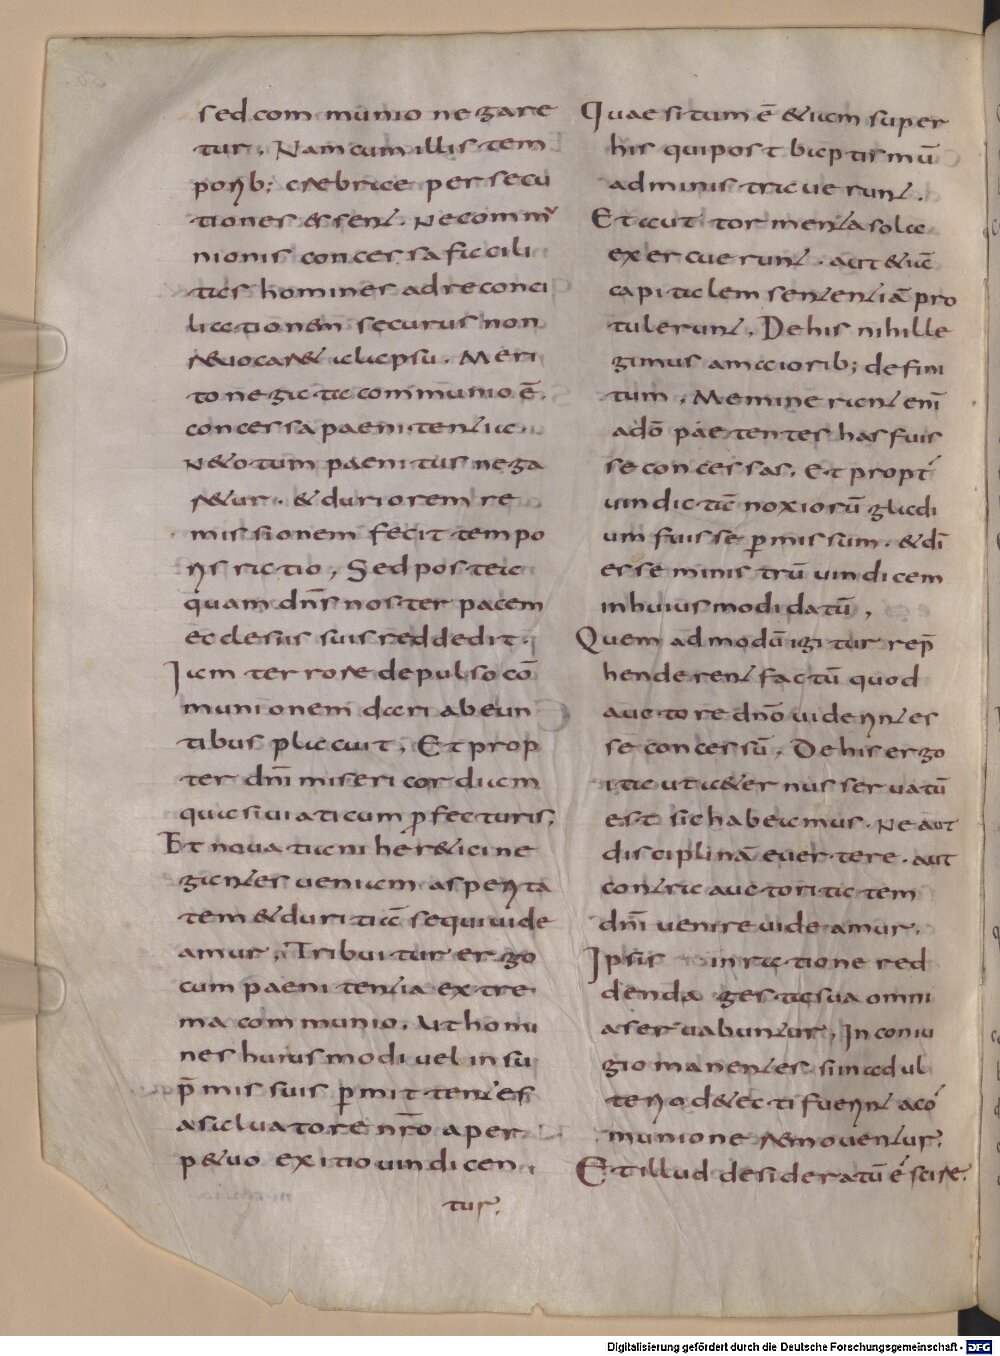 sed com munio negare
tur. Nam cum illis tem
porib; crebrae persecu
tiones essent. Ne commu
nionis concessa facili
tas homines ad reconci
liationem securus non
revocaret a lapsu. Meri
to negata communio ē.
concessa paenitentia.
Ne totum paenitus nega
retur. & duriorem re
missionem fecit tempo
ris ratio, Sed postea
quam dn̄s noster pacem
ecclesiis suis reddedit.
Iam terrore depulso cō
munionem dari abeun
tibus placuit, Et prop
ter dn̄i misericordiam
quasi viaticum p̄fecturis,
Et novatiani heretici ne
gantes veniam asperita
tem & duritiā sequi vide
amur, Tribuitur ergo
cum paenitentia extre
ma communio. Ut homi
nes huiusmodi vel in su
p̄mis suis p̄mittentes
a salvatore nr̄o a per
petuo exitio vindicen
tur.
Quaesitum ē & iam super
his qui post baptismū
administraverunt.
Et aut tormenta sola
exercuerunt. aut & iā
capitalem sententiā pro
tulerunt, De his nihil le
gimus a maiorib; defini
tum, Meminerant enī
a dō paetentes has fuis
se concessas, Et propt
vindictā noxiorū gladi
um fuisse p̄missum. & dī
esse ministrū vindicem
in huiusmodi datū,
Quem ad modū igitur rep̄
henderent factū quod
auctore dn̄o viderint es
se concessū, De his ergo
ita ut acternus servatū
est sic habeamus. Ne aut
disciplinā evertere. aut
contra auctoritatem
dn̄i venire videamur.
Ipsis in ractione red
denda gesta sua omni
a servabuntur, In coniu
gio manentes. si in adul
terio detecti fuerint a cō
munione removentur.
Et illud desideratū ē scire.
Digitalisierung gefördert durch die Deutsche Forschungsgemeinschaft - DFG